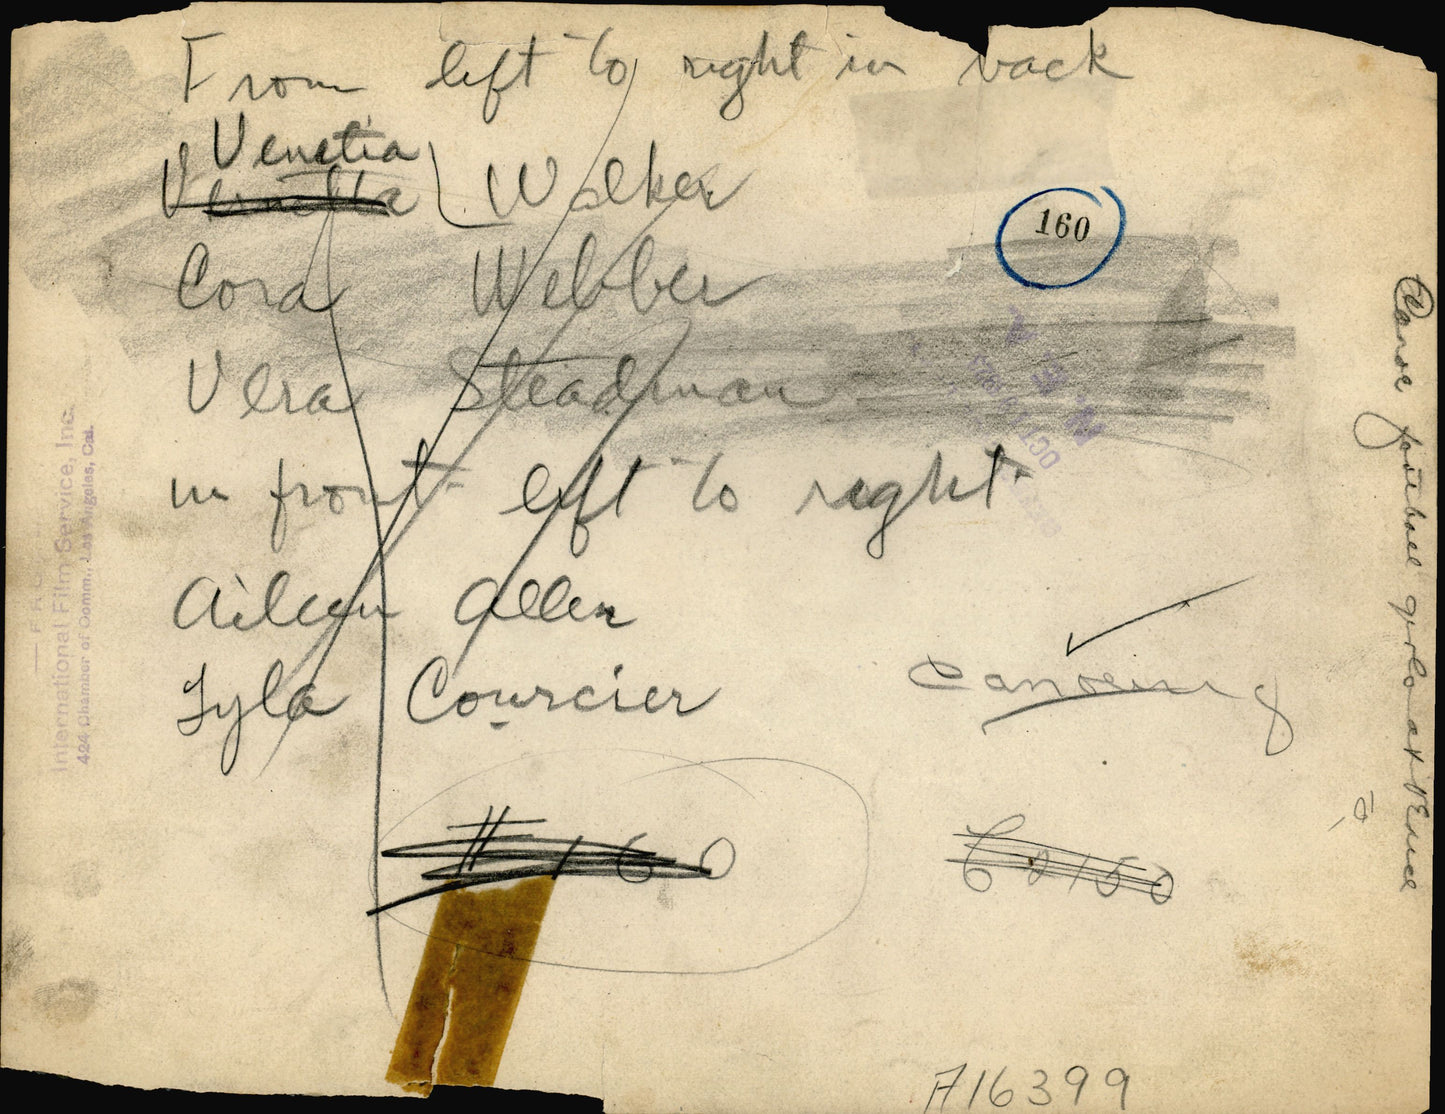 From left to right in back
Venetia
Walker
160
Cora Webber
Vera Steadman
in front left to right
Aileen Allen
Lyla Courcier
Canoeing
# 160
A16399
Canoe football girls at Venice
International Film Service, Inc.
424 Chamber of Comm., Los Angeles, Cal.
N. E. A.
OCT